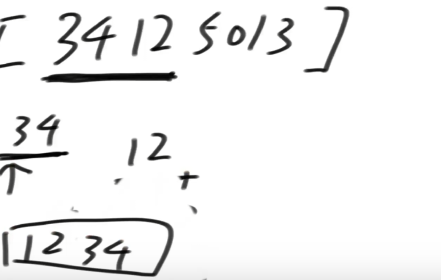 [ 3412 5013 ]
34 12
↑ +
1234